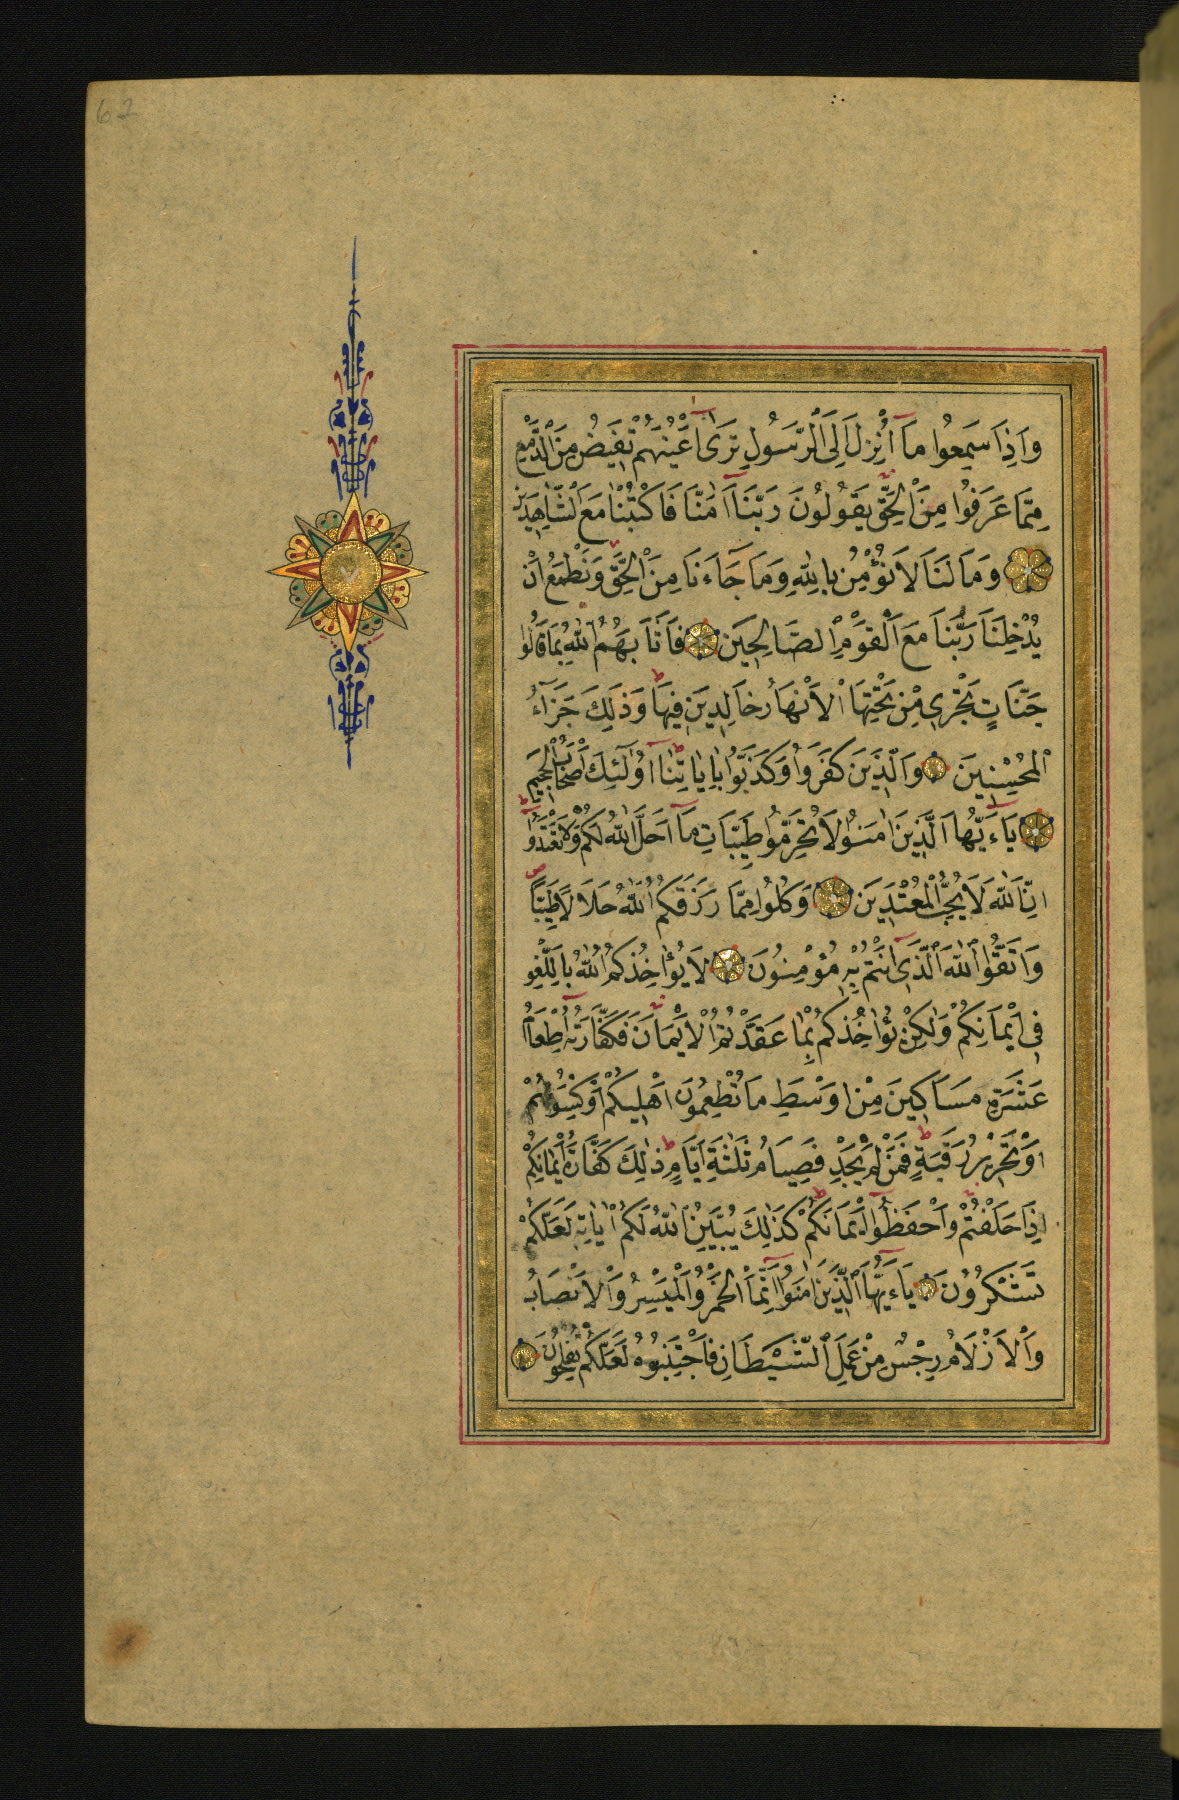 62
وَاِذَا سَمِعُوا مَآ اُنْزِلَ اِلَى الرَّسُولِ تَرٰٓى اَعْيُنَهُمْ تَفِيضُ مِنَ الدَّمْعِ
مِمَّا عَرَفُوا مِنَ الْحَقِّ يَقُولُونَ رَبَّنَآ اٰمَنَّا فَاكْتُبْنَا مَعَ الشَّاهِدِينَ
وَمَا لَنَا لَا نُؤْمِنُ بِاللّٰهِ وَمَا جَآءَنَا مِنَ الْحَقِّ وَنَطْمَعُ اَنْ
يُدْخِلَنَا رَبُّنَا مَعَ الْقَوْمِ الصَّالِحِينَ فَاَثَابَهُمُ اللّٰهُ بِمَا قَالُوا
جَنَّاتٍ تَجْرِى مِنْ تَحْتِهَا الْاَنْهَارُ خَالِدِينَ فِيهَا وَذٰلِكَ جَزَآءُ
الْمُحْسِنِينَ وَالَّذِينَ كَفَرُوا وَكَذَّبُوا بِاٰيَاتِنَآ اُولٰٓئِكَ اَصْحَابُ الْجَحِيمِ
يَآءَيُّهَا الَّذِينَ اٰمَنُوا لَا تُحَرِّمُوا طَيِّبَاتِ مَآ اَحَلَّ اللّٰهُ لَكُمْ وَلَا تَعْتَدُوا
اِنَّ اللّٰهَ لَا يُحِبُّ الْمُعْتَدِينَ وَكُلُوا مِمَّا رَزَقَكُمُ اللّٰهُ حَلَالًا طَيِّبًا
وَاتَّقُوا اللّٰهَ الَّذِىٓ اَنْتُمْ بِهِ مُؤْمِنُونَ لَا يُؤَاخِذُكُمُ اللّٰهُ بِاللَّغْوِ
فِٓى اَيْمَانِكُمْ وَلٰكِنْ يُؤَاخِذُكُمْ بِمَا عَقَّدْتُمُ الْاَيْمَانَ فَكَفَّارَتُهُٓ اِطْعَامُ
عَشَرَةِ مَسَاكِينَ مِنْ اَوْسَطِ مَا تُطْعِمُونَ اَهْلِيكُمْ اَوْ كِسْوَتُهُمْ
اَوْ تَحْرِيرُ رَقَبَةٍ فَمَنْ لَمْ يَجِدْ فَصِيَامُ ثَلٰثَةِ اَيَّامٍ ذٰلِكَ كَفَّارَةُ اَيْمَانِكُمْ
اِذَا حَلَفْتُمْ وَاحْفَظُوٓا اَيْمَانَكُمْ كَذٰلِكَ يُبَيِّنُ اللّٰهُ لَكُمْ اٰيَاتِهِ لَعَلَّكُمْ
تَشْكُرُونَ يَآءَيُّهَا الَّذِينَ اٰمَنُوٓا اِنَّمَا الْخَمْرُ وَالْمَيْسِرُ وَالْاَنْصَابُ
وَالْاَزْلَامُ رِجْسٌ مِنْ عَمَلِ الشَّيْطَانِ فَاجْتَنِبُوهُ لَعَلَّكُمْ تُفْلِحُونَ